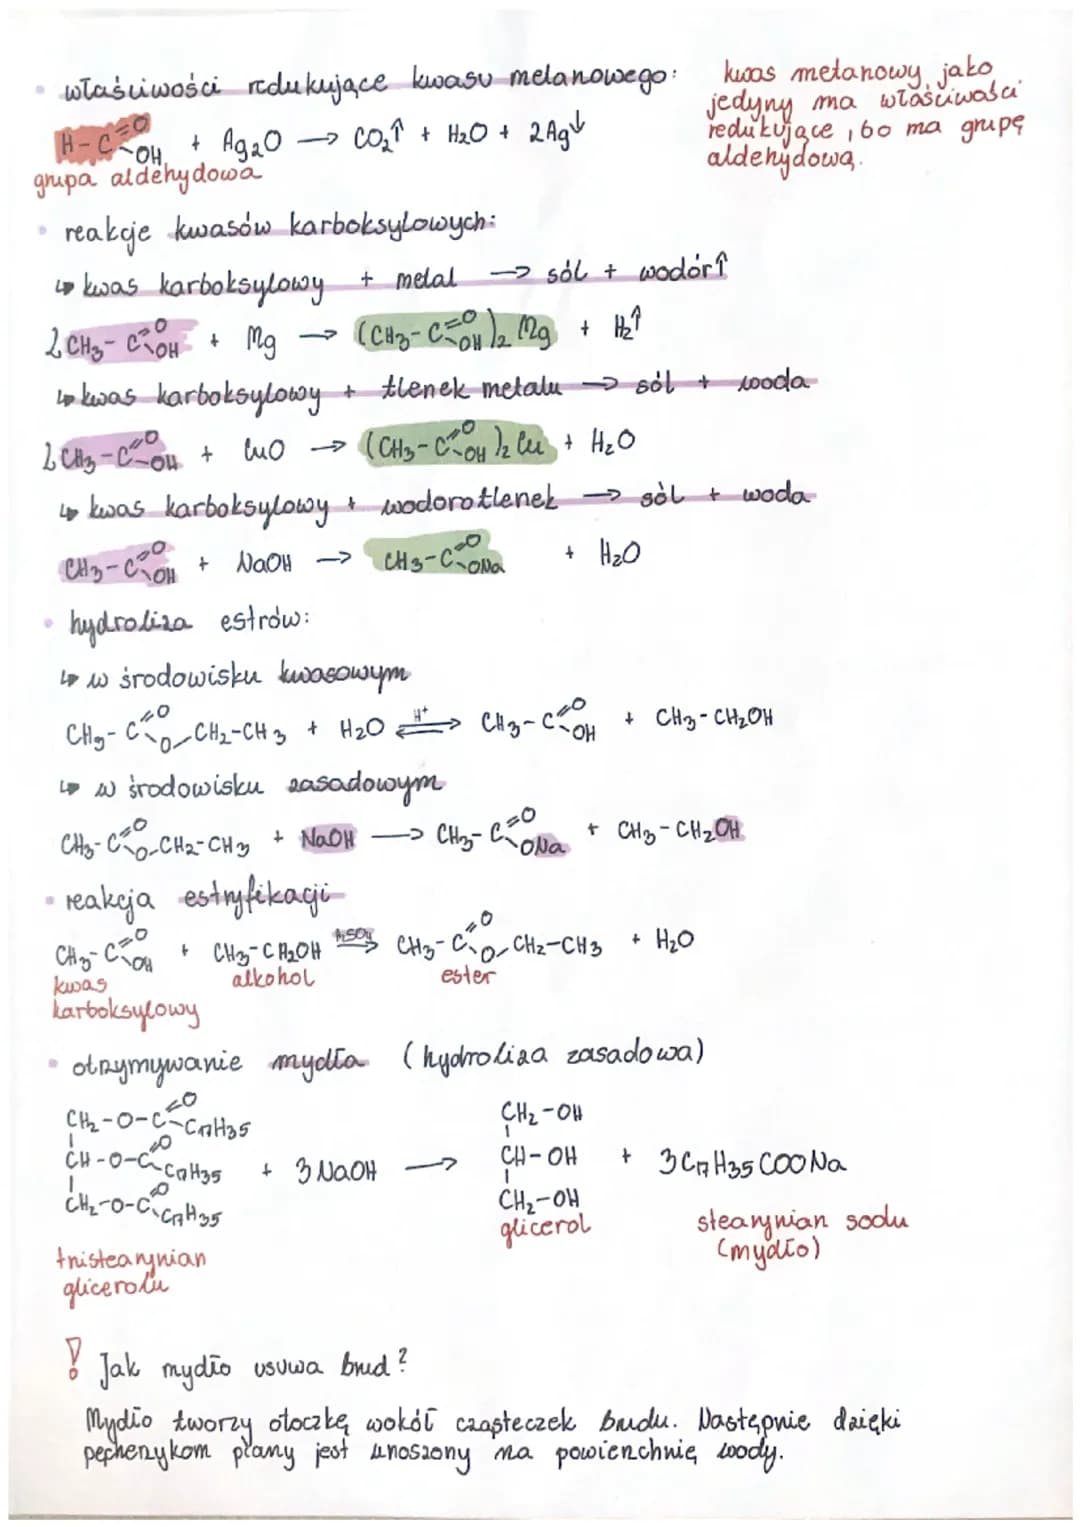 • właściwości redukujące kwasu metanowego:
kwas metanowy, jako
jedyny ma właściwości
redukujące, bo ma grupę
aldehydową.
H-C=O-OH + Ag2O → CO2↑ + H2O + 2Ag↓
grupa aldehydowa
• reakcje kwasów karboksylowych:
↳ kwas karboksylowy + metal → sól + wodór↑
2CH3-C=O-OH + Mg → (CH3-C=O-OH)2 Mg + H2↑
↳ kwas karboksylowy + tlenek metalu → sól + woda
2CH3-C=O-OH + CuO → (CH3-C=O-OH)2 Cu + H2O
↳ kwas karboksylowy + wodorotlenek → sól + woda
CH3-C=O-OH + NaOH → CH3-C=O-ONa + H2O
• hydroliza estrów:
↳ w środowisku kwasowym
CH3-C=O-O-CH2-CH3 + H2O ⇌ H+ CH3-C=O-OH + CH3-CH2OH
↳ w środowisku zasadowym
CH3-C=O-O-CH2-CH3 + NaOH → CH3-C=O-ONa + CH3-CH2OH
• reakcja estryfikacji
CH3-C=O-OH + CH3-CH2OH H2SO4→ CH3-C=O-O-CH2-CH3 + H2O
kwas karboksylowy
alkohol
ester
• otrzymywanie mydła (hydroliza zasadowa)
CH2-O-C=O-C17H35 CH2-OH
CH-O-C=O-C17H35 + 3NaOH → CH-OH + 3C17H35COONa
CH2-O-C=O-C17H35 CH2-OH
tristearynian
glicerolu
glicerol
stearynian sodu
(mydło)
! Jak mydło usuwa brud?
Mydło tworzy otoczkę wokół cząsteczek brudu. Następnie dzięki
pęcherzykom piany jest unoszony na powierzchnię wody.